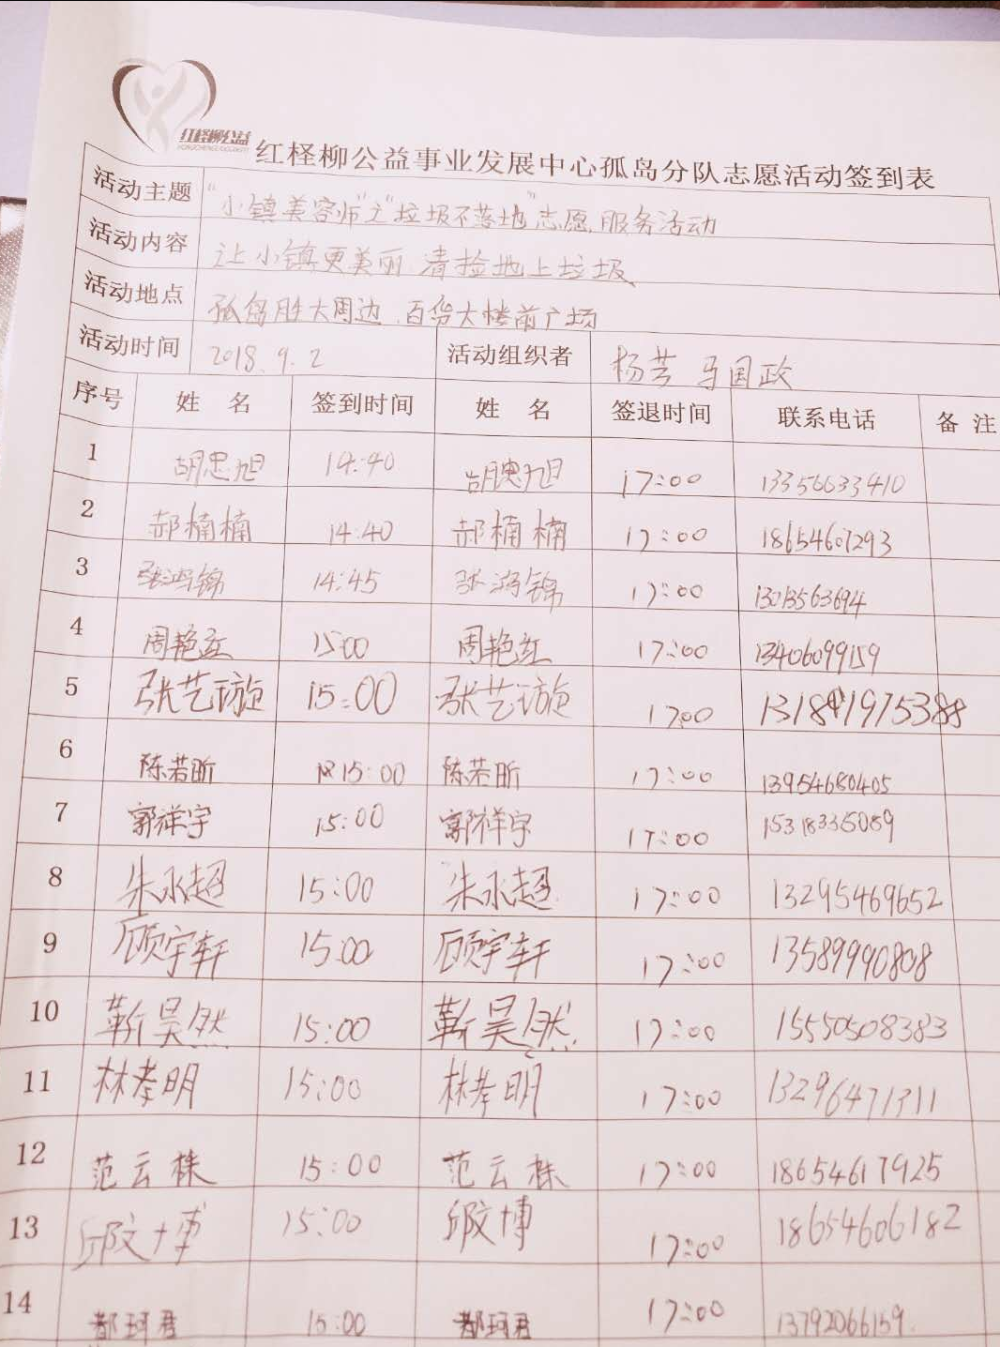 红柽柳公益
红柽柳公益事业发展中心孤岛分队志愿活动签到表
活动主题 "小镇美容师"之"垃圾不落地"志愿服务活动
活动内容 让小镇更美丽 清捡地上垃圾
活动地点 孤岛胜大周边、百货大楼前广场
活动时间 2018.9.2 活动组织者 杨芸 马国政
序号 姓名 签到时间 姓名 签退时间 联系电话 备注
1 胡忠旭 14:40 胡忠旭 17:00 13356633410
2 郝楠楠 14:40 郝楠楠 17:00 18654607293
3 张鸿锦 14:45 张鸿锦 17:00 13013563694
4 周艳红 15:00 周艳红 17:00 13406099159
5 张艺璇 15:00 张艺璇 17:00
6 陈若昕 15:00 陈若昕 17:00 13954680405
7 郭祥宇 15:00 郭祥宇 17:00
8 朱永超 15:00 朱永超 17:00 13295469652
9 顾宇轩 15:00 顾宇轩 17:00 13589990808
10 靳昊然 15:00 靳昊然 17:00 15550508383
11 林孝明 15:00 林孝明 17:00 13296471311
12 范云株 15:00 范云株 17:00 18654617925
13 邱文博 15:00 邱文博 17:00 18654606182
14 都珂君 15:00 都珂君 17:00 13792066159